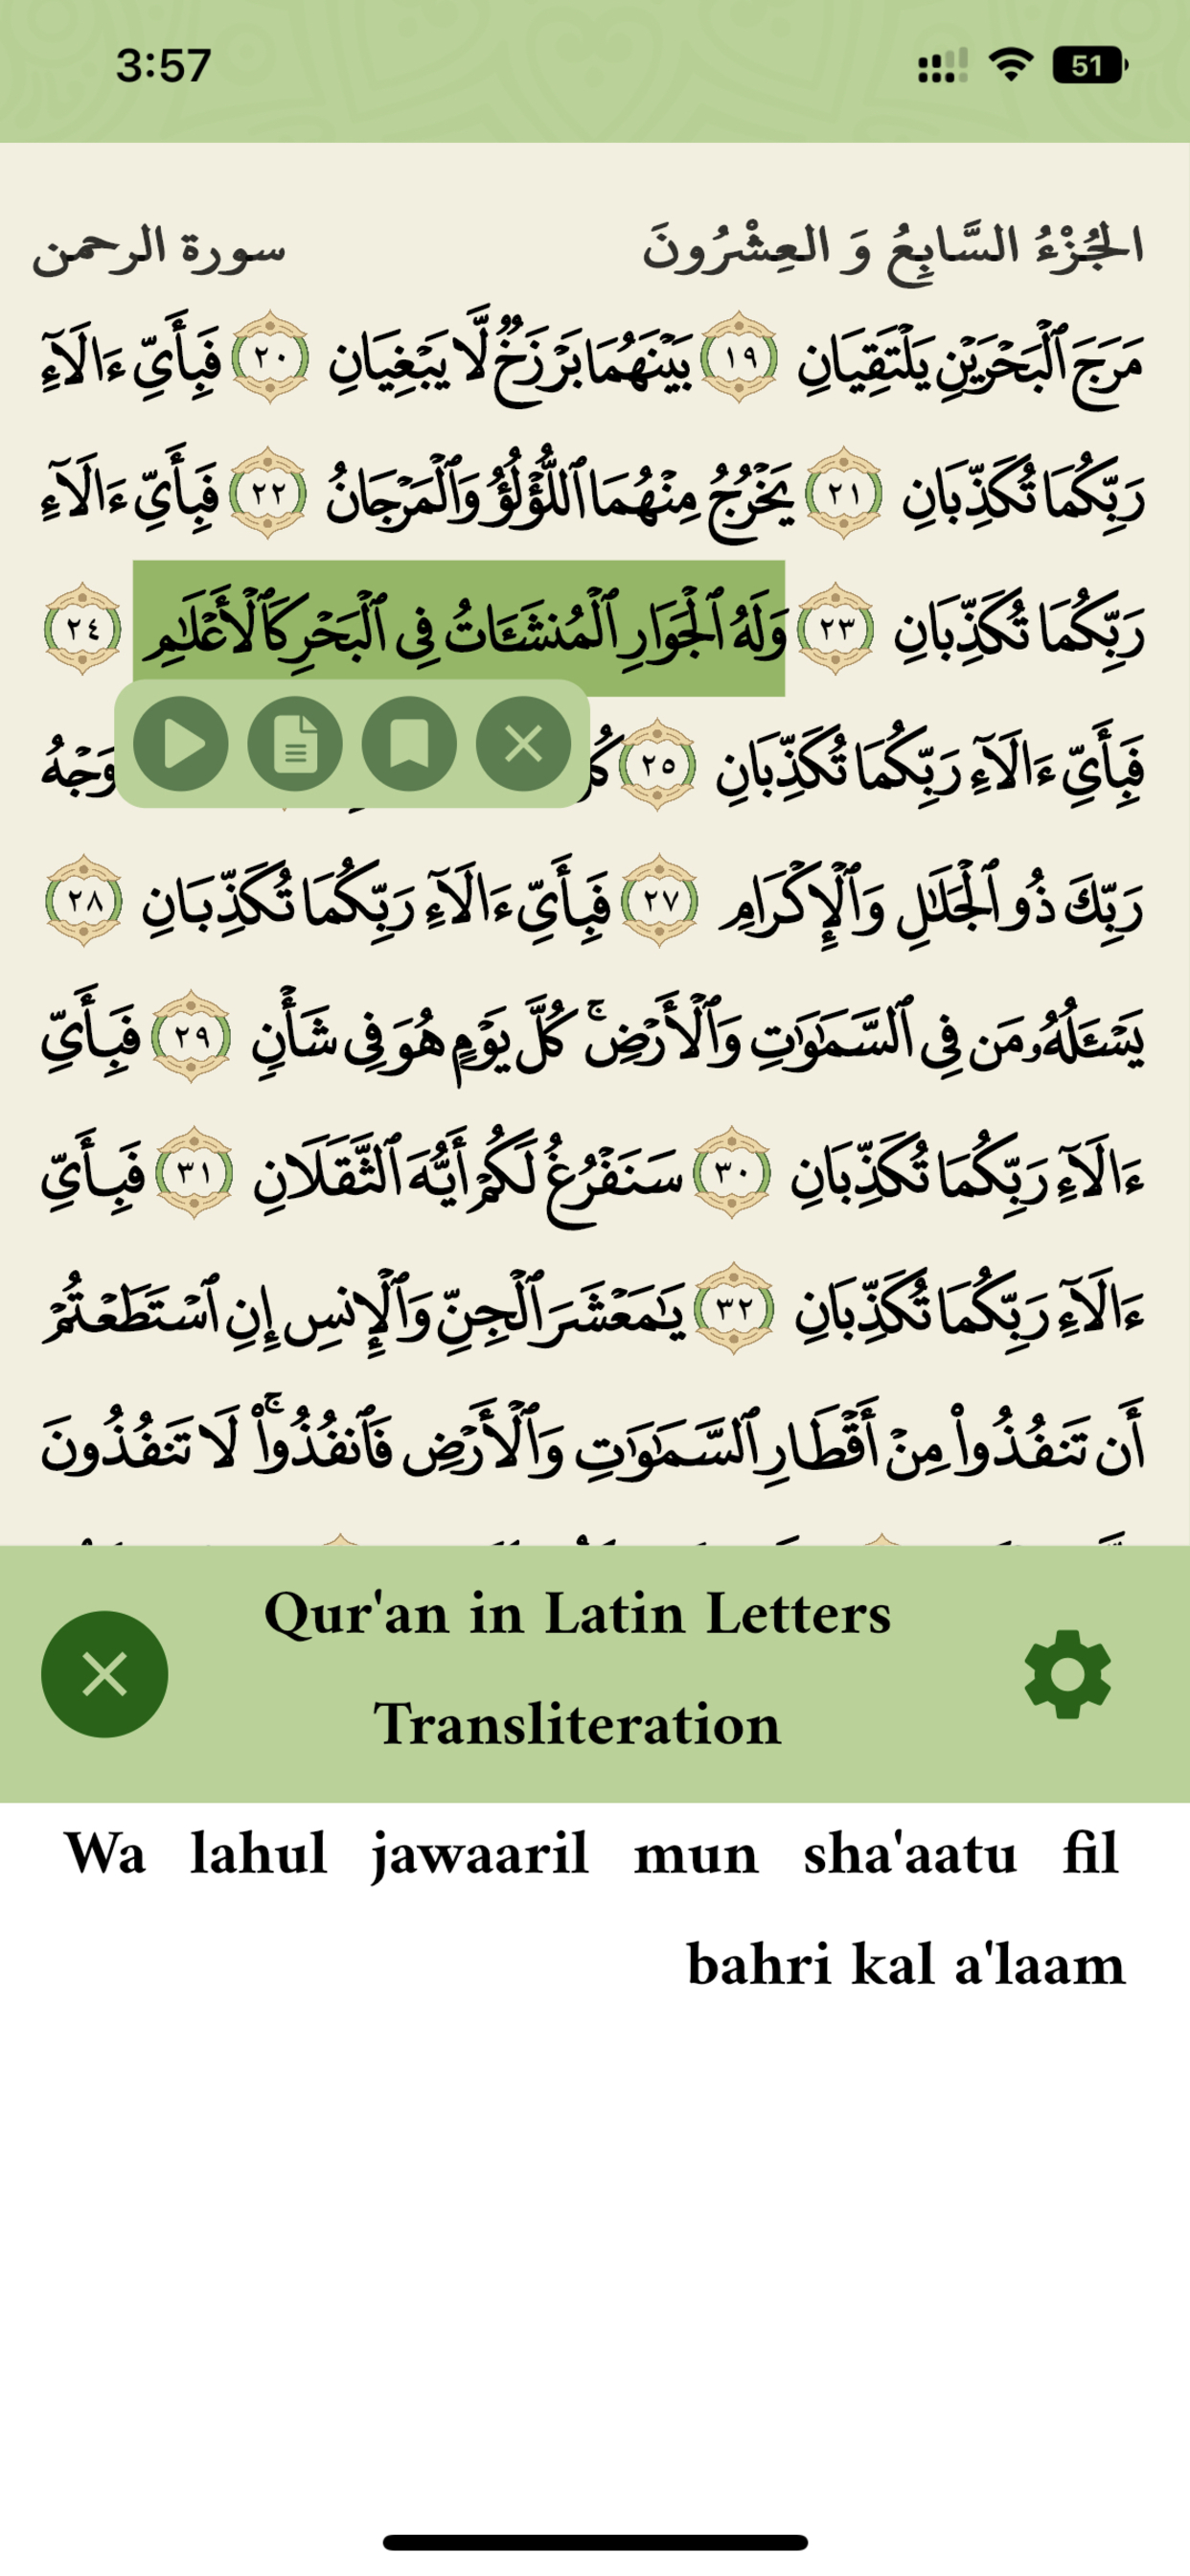 3:57
51
الجُزْءُ السَّابِعُ وَ العِشْرُونَ سورة الرحمن
مَرَجَ ٱلْبَحْرَيْنِ يَلْتَقِيَانِ ١٩ بَيْنَهُمَا بَرْزَخٌ لَّا يَبْغِيَانِ ٢٠ فَبِأَيِّ ءَالَآءِ
رَبِّكُمَا تُكَذِّبَانِ ٢١ يَخْرُجُ مِنْهُمَا ٱللُّؤْلُؤُ وَٱلْمَرْجَانُ ٢٢ فَبِأَيِّ ءَالَآءِ
رَبِّكُمَا تُكَذِّبَانِ ٢٣ وَلَهُ ٱلْجَوَارِ ٱلْمُنشَـَٔاتُ فِى ٱلْبَحْرِ كَٱلْأَعْلَـٰمِ ٢٤
فَبِأَيِّ ءَالَآءِ رَبِّكُمَا تُكَذِّبَانِ ٢٥ وَجْهُ
رَبِّكَ ذُو ٱلْجَلَـٰلِ وَٱلْإِكْرَامِ ٢٧ فَبِأَيِّ ءَالَآءِ رَبِّكُمَا تُكَذِّبَانِ ٢٨
يَسْـَٔلُهُۥ مَن فِى ٱلسَّمَـٰوَٰتِ وَٱلْأَرْضِ ۚ كُلَّ يَوْمٍ هُوَ فِى شَأْنٍ ٢٩ فَبِأَيِّ
ءَالَآءِ رَبِّكُمَا تُكَذِّبَانِ ٣٠ سَنَفْرُغُ لَكُمْ أَيُّهَ ٱلثَّقَلَانِ ٣١ فَبِأَيِّ
ءَالَآءِ رَبِّكُمَا تُكَذِّبَانِ ٣٢ يَـٰمَعْشَرَ ٱلْجِنِّ وَٱلْإِنسِ إِنِ ٱسْتَطَعْتُمْ
أَن تَنفُذُوا۟ مِنْ أَقْطَارِ ٱلسَّمَـٰوَٰتِ وَٱلْأَرْضِ فَٱنفُذُوا۟ ۚ لَا تَنفُذُونَ
Qur'an in Latin Letters
Transliteration
Wa lahul jawaaril mun sha'aatu fil
bahri kal a'laam